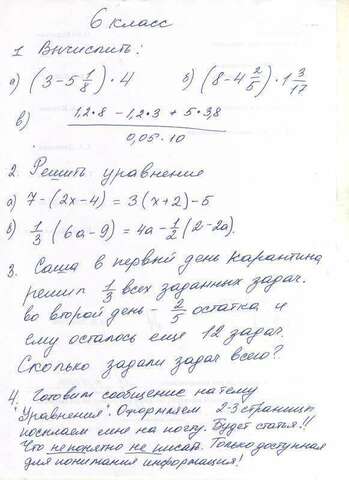 6 класс
1. Вычислить:
а) (3-5 1/8)·4 б) (8-4 2/5)·1 3/17
в) (1,2·8 - 1,2·3 + 5·3,8)/(0,05·10)
2. Решить уравнение
а) 7-(2x-4) = 3(x+2)-5
б) 1/3(6a-9) = 4a-1/2(2-2a).
3. Саша в первый день карантина
решил 1/3 всех заданных задач.
во второй день - 2/5 остатка и
ему осталось еще 12 задач.
Сколько задали задач всего?
4. Готовим сообщение на тему
"Уравнения". Оформляем 2-3 страницы
посылаем мне на почту. Будет статья!!
Что не понятно не писать. Только доступная
для понимания информация!